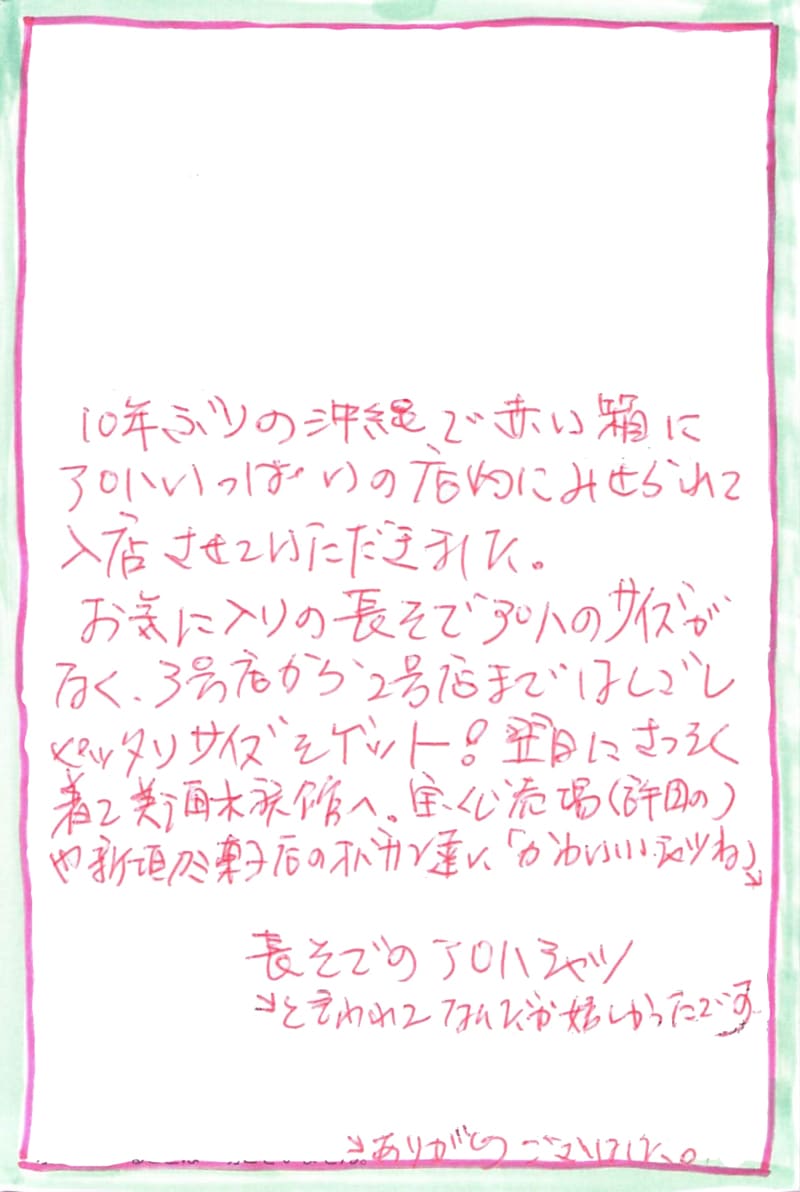 10年ぶりの沖縄、で赤い箱に
アロハいっぱいの店内にみせられて
入店させていただきました。
お気に入りの長そでアロハのサイズが
なく、3号店から2号店まではしごし
ピッタリサイズをゲット!翌日にさっそく
着て美術館へ。宝くじ売場(許田の)
や新垣菓子店のオバサン達に「かわいいシャツね」↘
長そでのアロハシャツ
↘と言われてなんだか嬉しかったです
↘ありがとうございました。